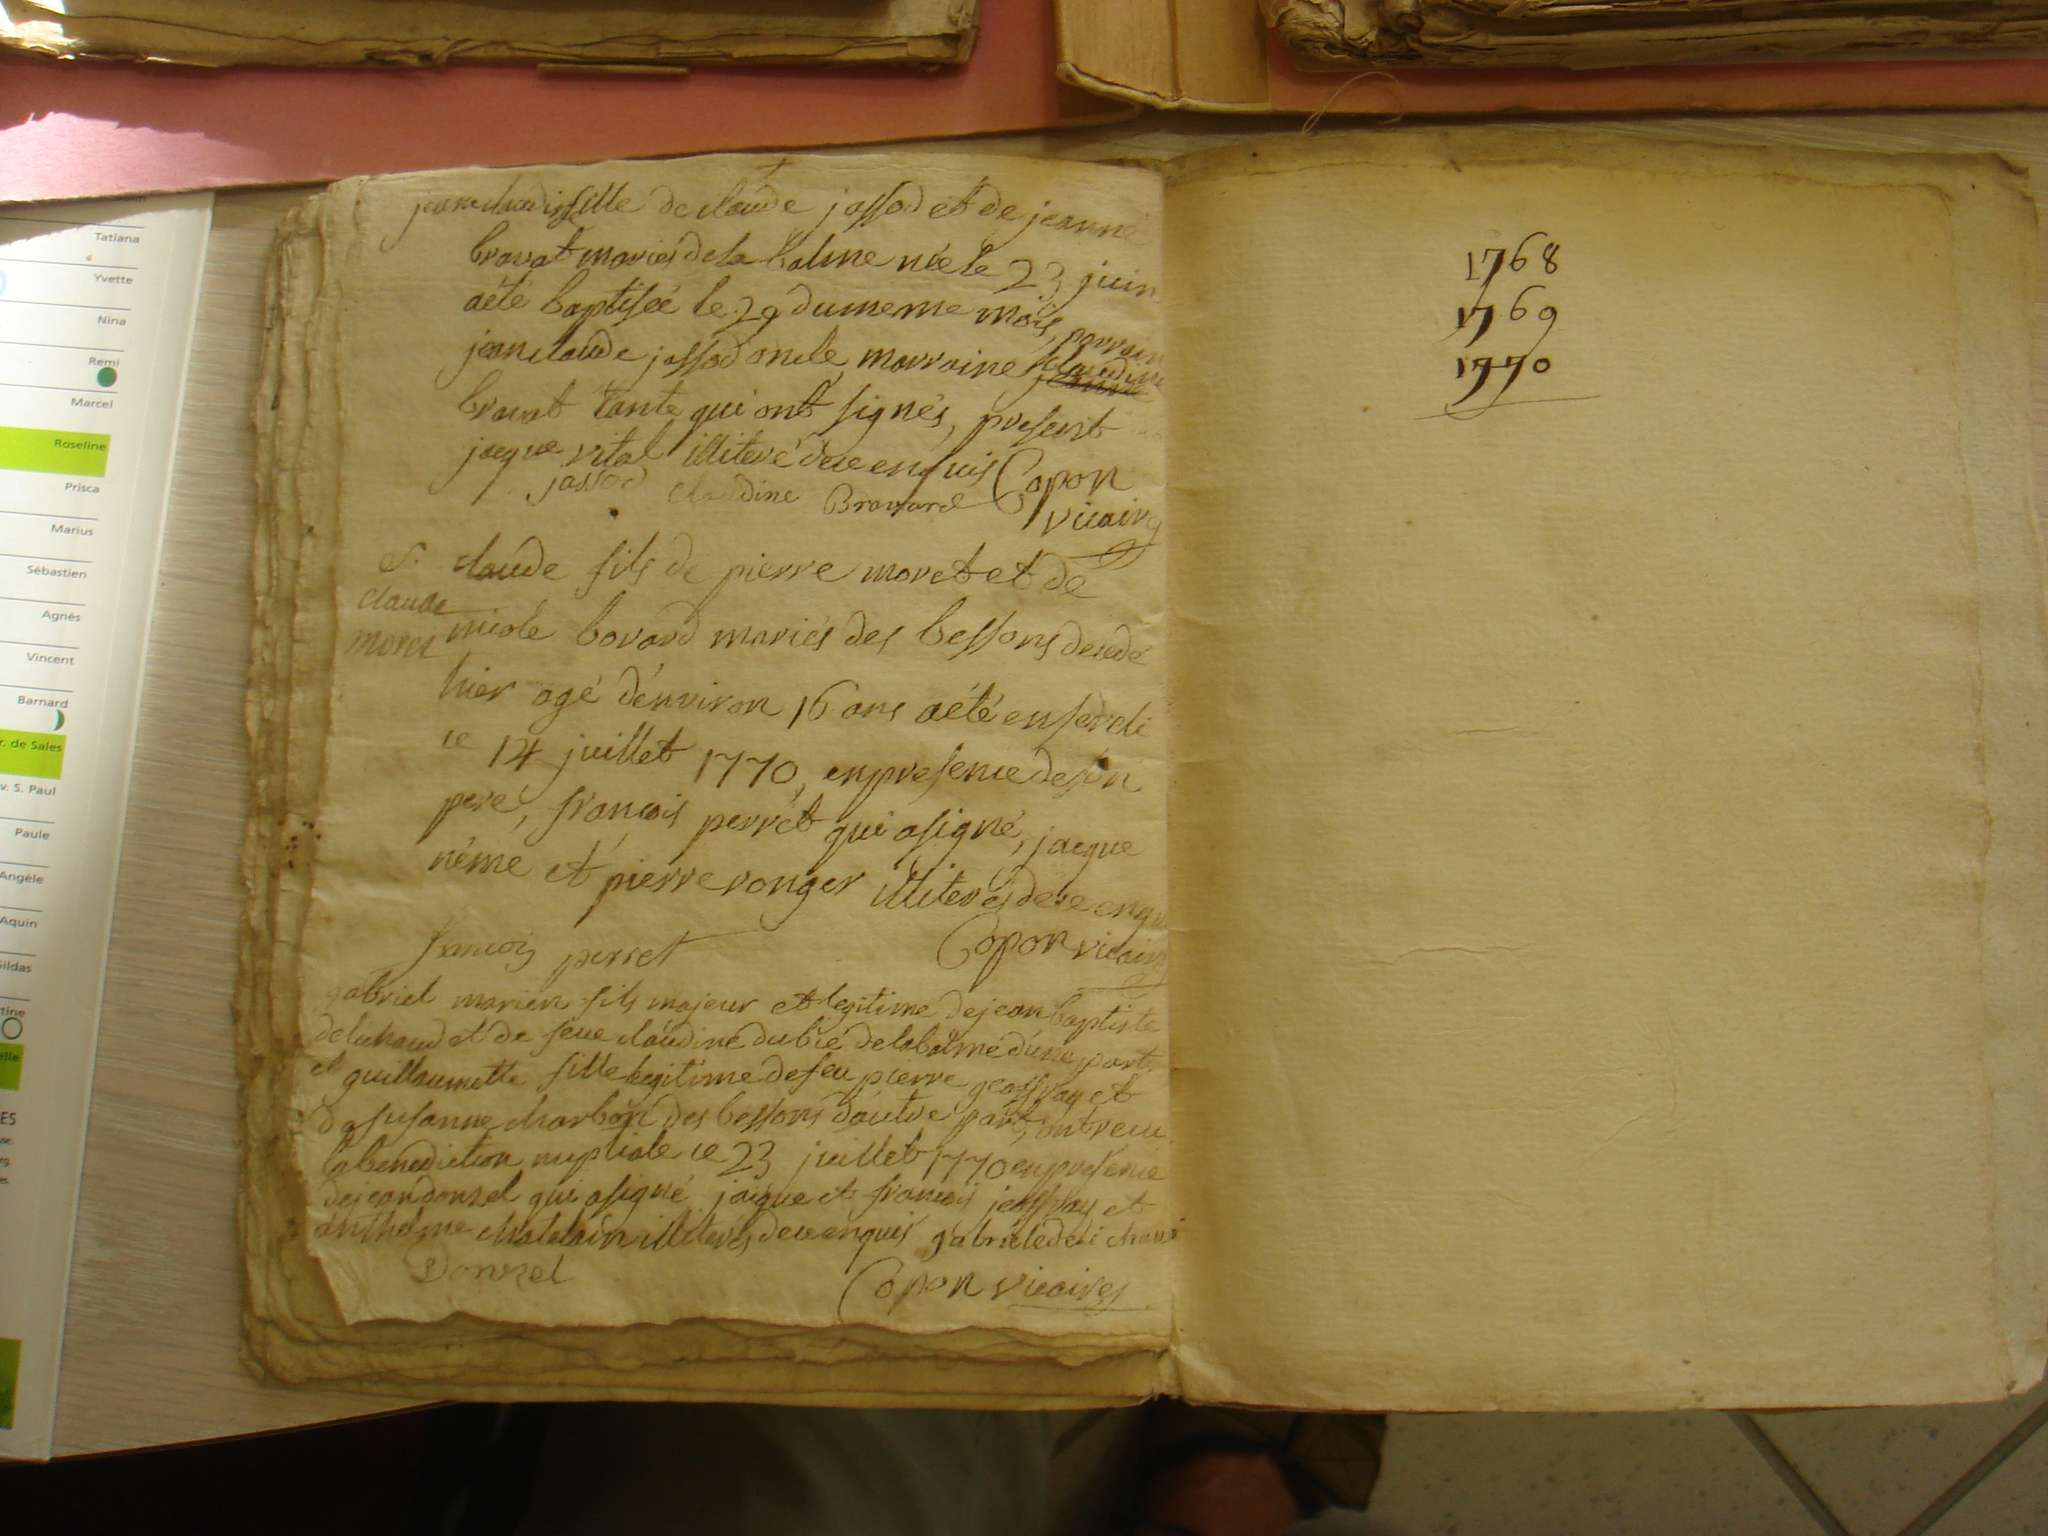 Tatiana
Yvette
Nina
Remi
Marcel
Roseline
Prisca
Marius
Sébastien
Agnès
Vincent
Barnard
r. de Sales
v. S. Paul
Paule
Angèle
Aquin
ildas
tine
elle
ES
fille de claude jassod et de jeanne
bravat mariés de la balme née le 23 juin
aété baptisée le 29 dumeme mois, parrain
jean claude jassod oncle, marraine claudine
bravat tante qui ont signés, present
jacque vital illiteré dece enquis Copon
jassod claudine Bravard vicaire
claude fils de pierre moret et de
claude
moret
nicole bovard mariés des bessons decedé
hier agé d'environ 16 ans aété enseveli
le 14 juillet 1770, enpresence deson
pere, françois perret qui asigné, jacque
néme et pierre ronger illiterés dece enqu
françois perret Copon vicaire
gabriel marien fils majeur et legitime dejean baptiste
delichaud et de feue claudine dubié delabalme d'une part
et guillaumette fille legitime defeu pierre geoffray et
de susanne charbon des bessons d'autre part, ont recu
labenediction nuptiale le 23 juillet 1770 enpresence
dejean donzel qui asigné jacque et françois jeoffray et
anthelme chatelain illiterés dece enquis gabriel delichaud
Donzel Copon vicaire
1768
1769
1770